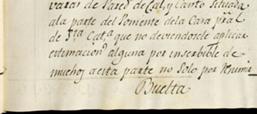 varas de Pared de Cal, y Canto situada
a la parte del Poniente de la Casa pral
de Sta Cata que no deviendosele aplicar
estimacion alguna por inservible de
muchos a esta parte no solo por
Buelta